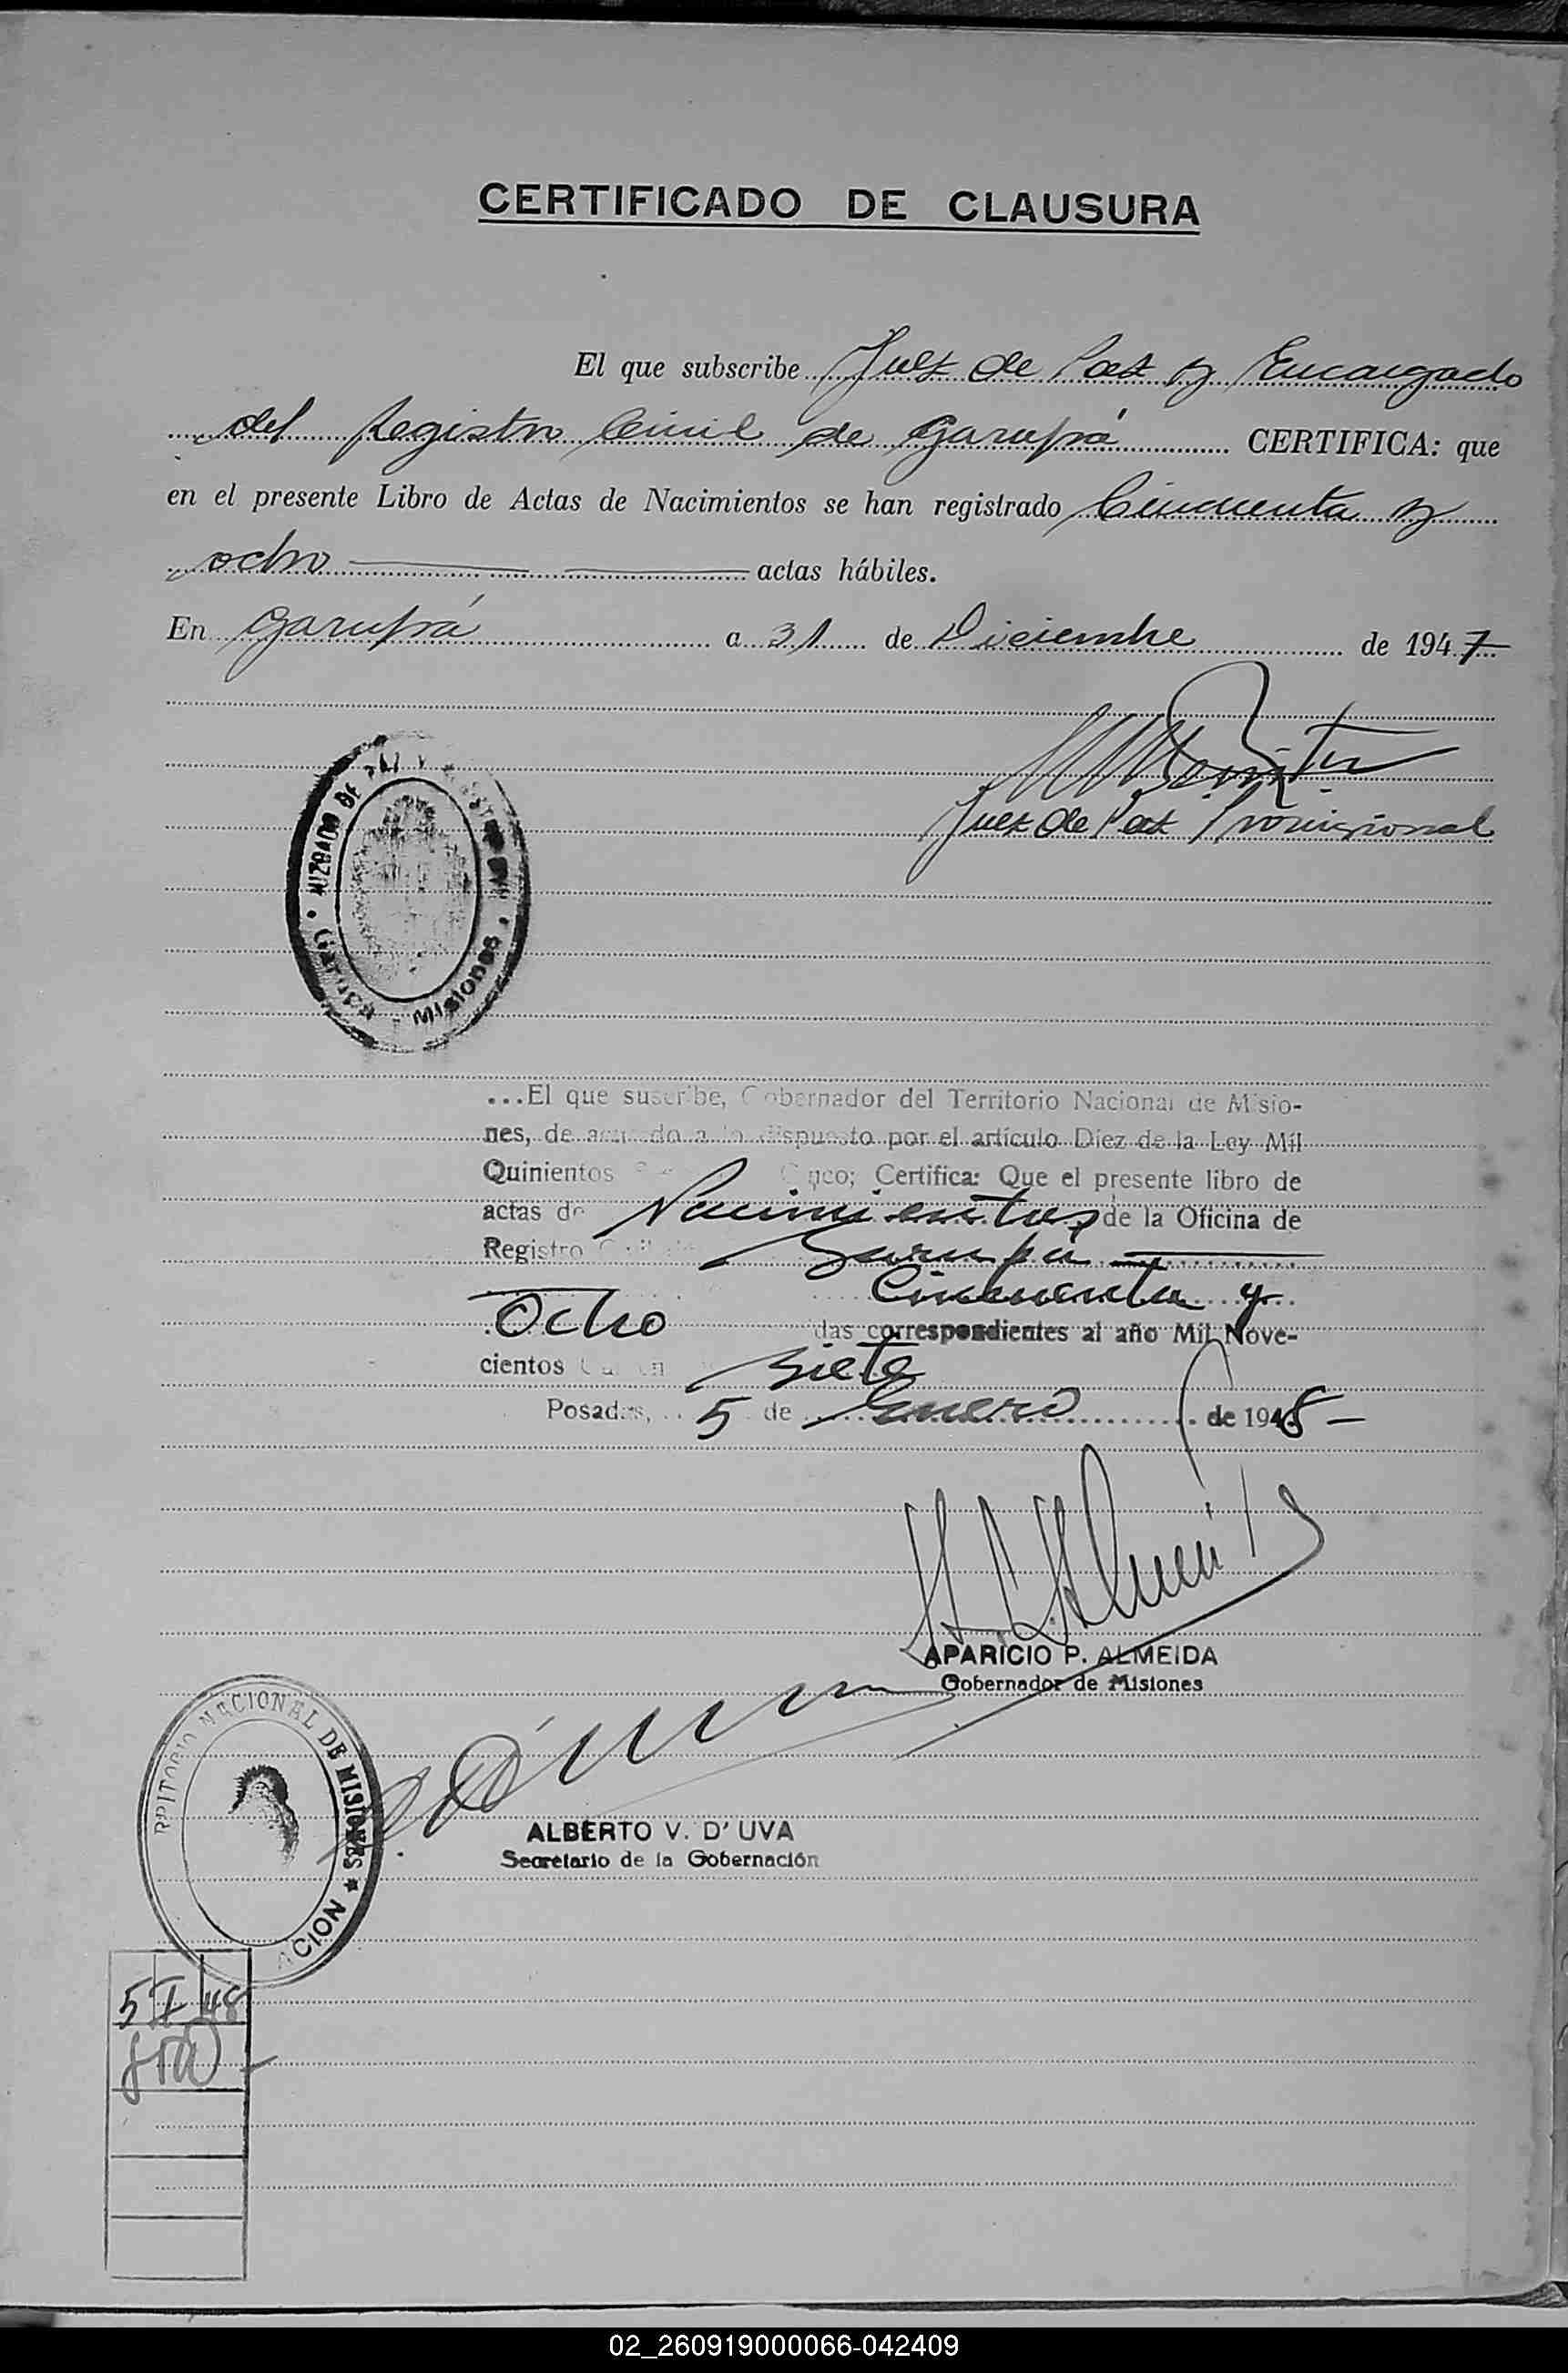 CERTIFICADO DE CLAUSURA
El que subscribe Juez de Paz y Encargado
del Registro Civil de Garupá CERTIFICA: que
en el presente Libro de Actas de Nacimientos se han registrado Cincuenta y
ocho actas hábiles.
En Garupá a 31 de Diciembre de 1947
Juez de Paz Provisional
JUZGADO DE PAZ Y
Garupá - Misiones
...El que suscribe, Gobernador del Territorio Nacional de Misio-
nes, de acuerdo a lo dispuesto por el artículo Diez de la Ley Mil
Quinientos Certifica: Que el presente libro de
actas de Nacimientos de la Oficina de
Registro Garupá
Cincuenta y
Ocho das correspondientes al año Mil Nove-
cientos Siete
Posadas, 5 de Enero de 1948
APARICIO P. ALMEIDA
Gobernador de Misiones
RRITORIO NACIONAL DE MISIONES ★ ACION
ALBERTO V. D' UVA
Secretario de la Gobernación
5 I 48
02_260919000066-042409